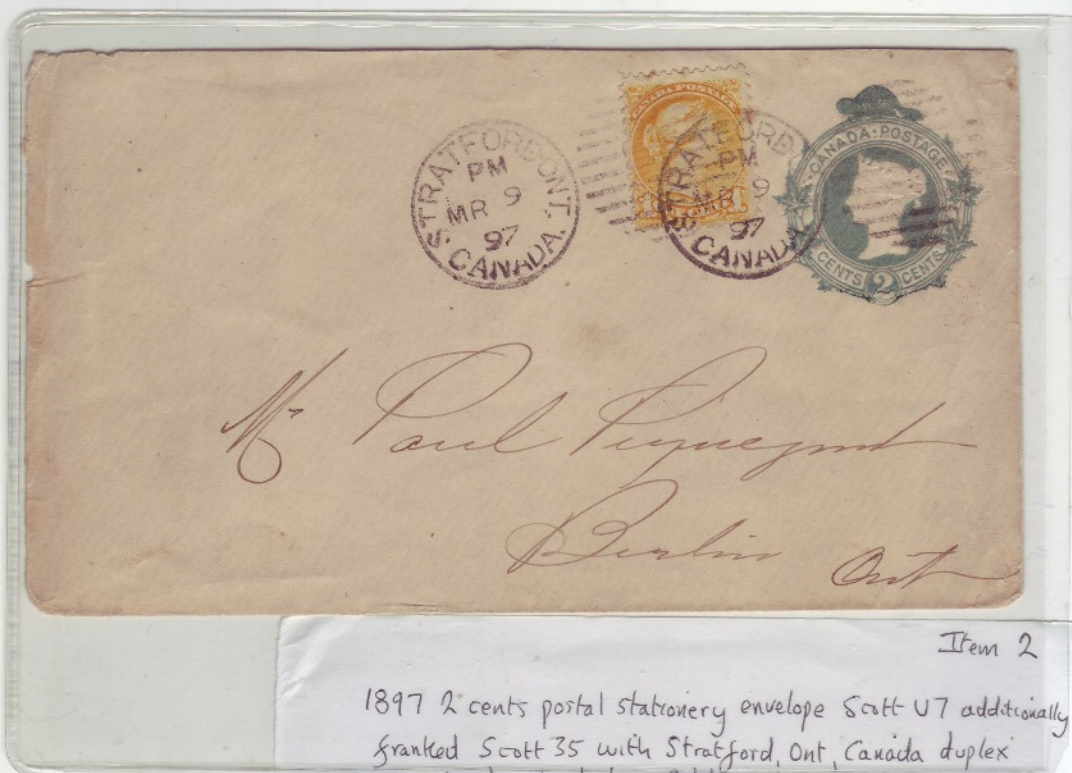 STRATFORD ONT.
PM
MR 9
97
CANADA.
CANADA POSTAGE
STRATFORD
PM
MR 9
97
CANADA
CANADA POSTAGE
CENTS 2 CENTS
Mr Paul
Berlin Ont
Item 2
1897 2 cents postal stationery envelope Scott U7 additionally
franked Scott 35 with Stratford, Ont, Canada duplex